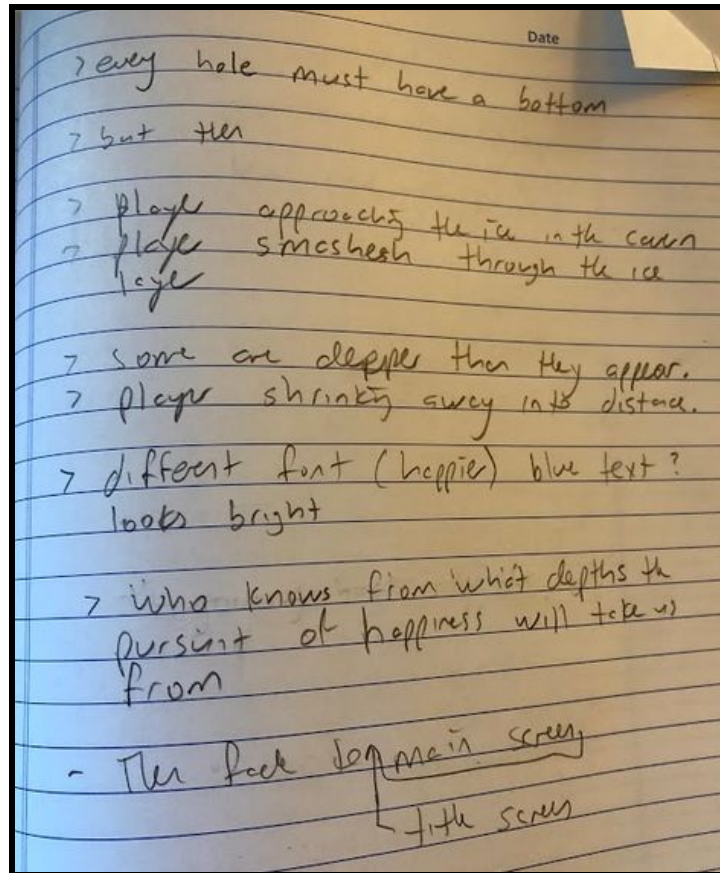 Date
> every hole must have a bottom
> but then
> player approaching the ice in the cavern
> player smashesh through the ice
layer
> some are deepper than they appear.
> player shrinking away into distance.
> different font (happier) blue text?
looks bright
> who knows from what depths the
pursuit of happiness will take us
from
- Then fade to main screen
title screen